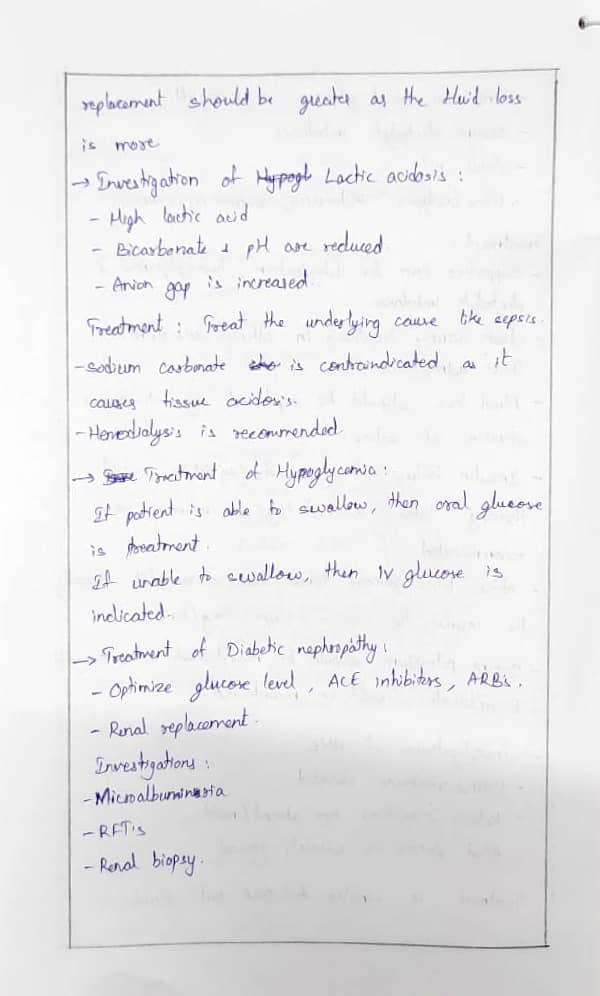 replacement should be greater as the fluid loss
is more
→ Investigation of Hypogl Lactic acidosis :
- High lactic acid
- Bicarbonate & pH are reduced.
- Anion gap is increased.
Treatment : Treat the underlying cause like sepsis.
- Sodium carbonate is contraindicated, as it
causes tissue acidosis.
- Hemodialysis is recommended.
→ Treatment of Hypoglycemia :
If patient is able to swallow, then oral glucose
is treatment.
If unable to swallow, then IV glucose is
indicated.
→ Treatment of Diabetic nephropathy :
- Optimize glucose level, ACE inhibitors, ARBs.
- Renal replacement.
Investigations :
- Microalbuminuria
- RFT's
- Renal biopsy.